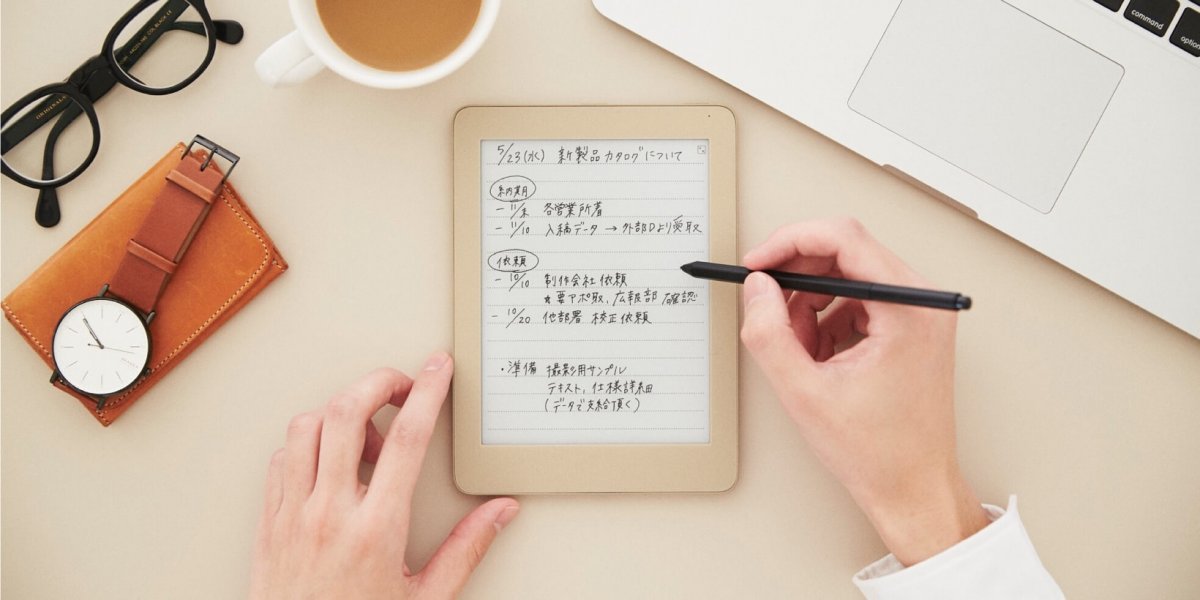 5/23(水) 新製品カタログについて
納期
- 11/末 各営業所着
- 11/10 入稿データ → 外部Dより受取
依頼
- 10/10 制作会社依頼
★要アポ取、広報部 確認
- 10/20 他部署 校正依頼
・準備 撮影用サンプル
テキスト、仕様詳細
(データで支給頂く)
command
option